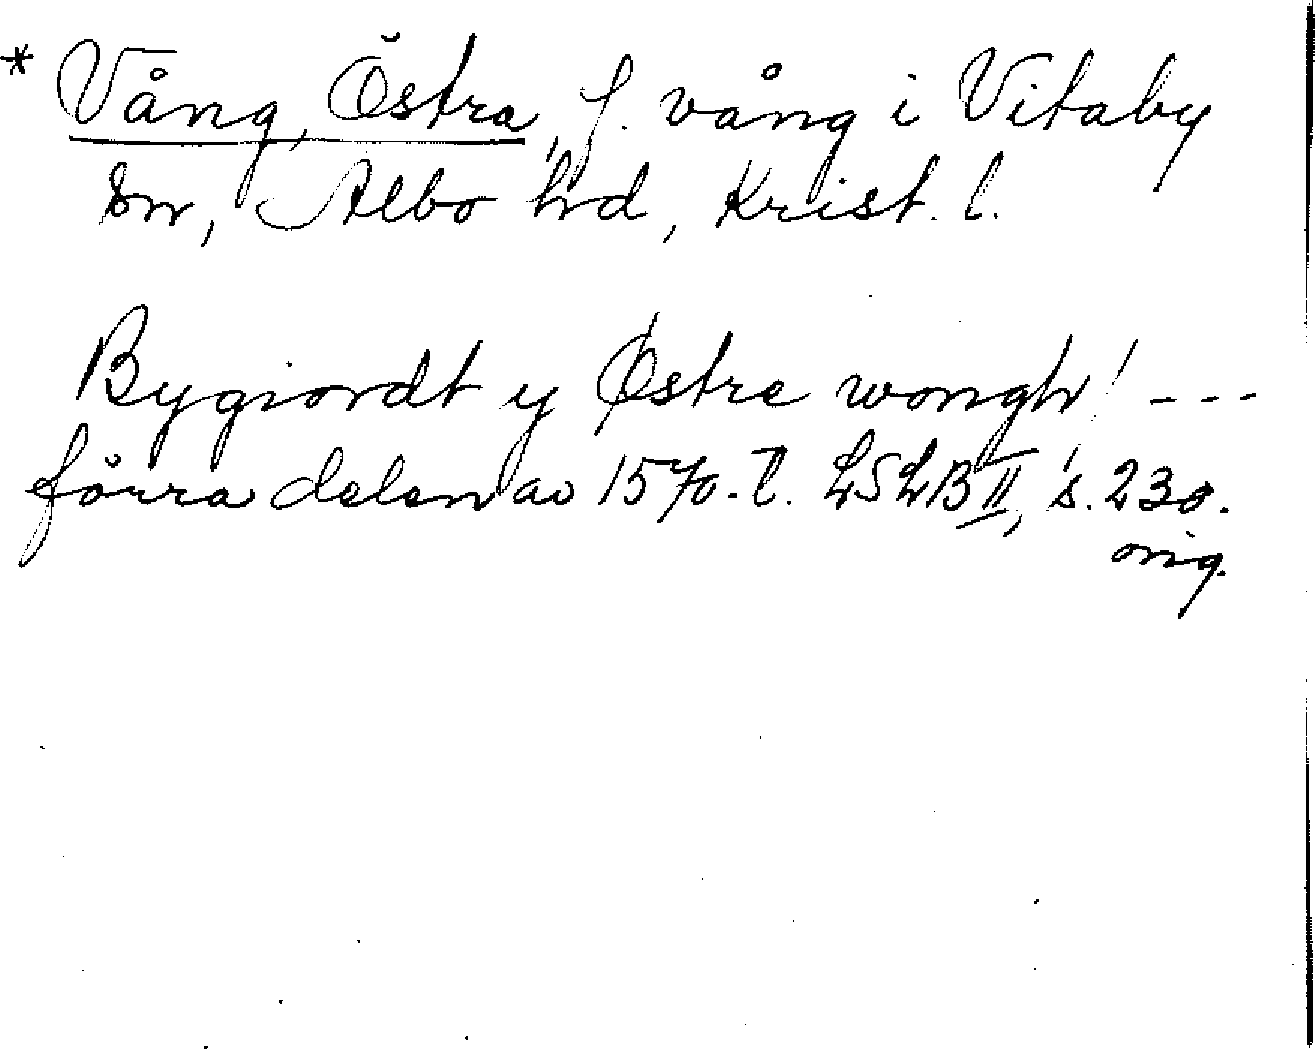 * Vång, Östra, f. vång i Vitaby
sn, Albo hd, Krist. l.
Bygiordt y Østre wongh! ---
förra delen av 1570-t. LSLB II, s. 230.
orig.